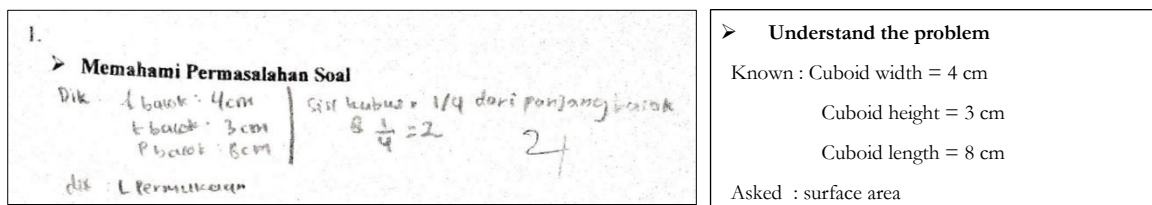 1.
➤ Memahami Permasalahan Soal
Dik : l balok : 4cm
t balok : 3 cm
P balok : 8cm
Sisi kubus = 1/4 dari panjang balok
8 1/4 = 2
2
dit : L Permukaan
➤ Understand the problem
Known : Cuboid width = 4 cm
Cuboid height = 3 cm
Cuboid length = 8 cm
Asked : surface area